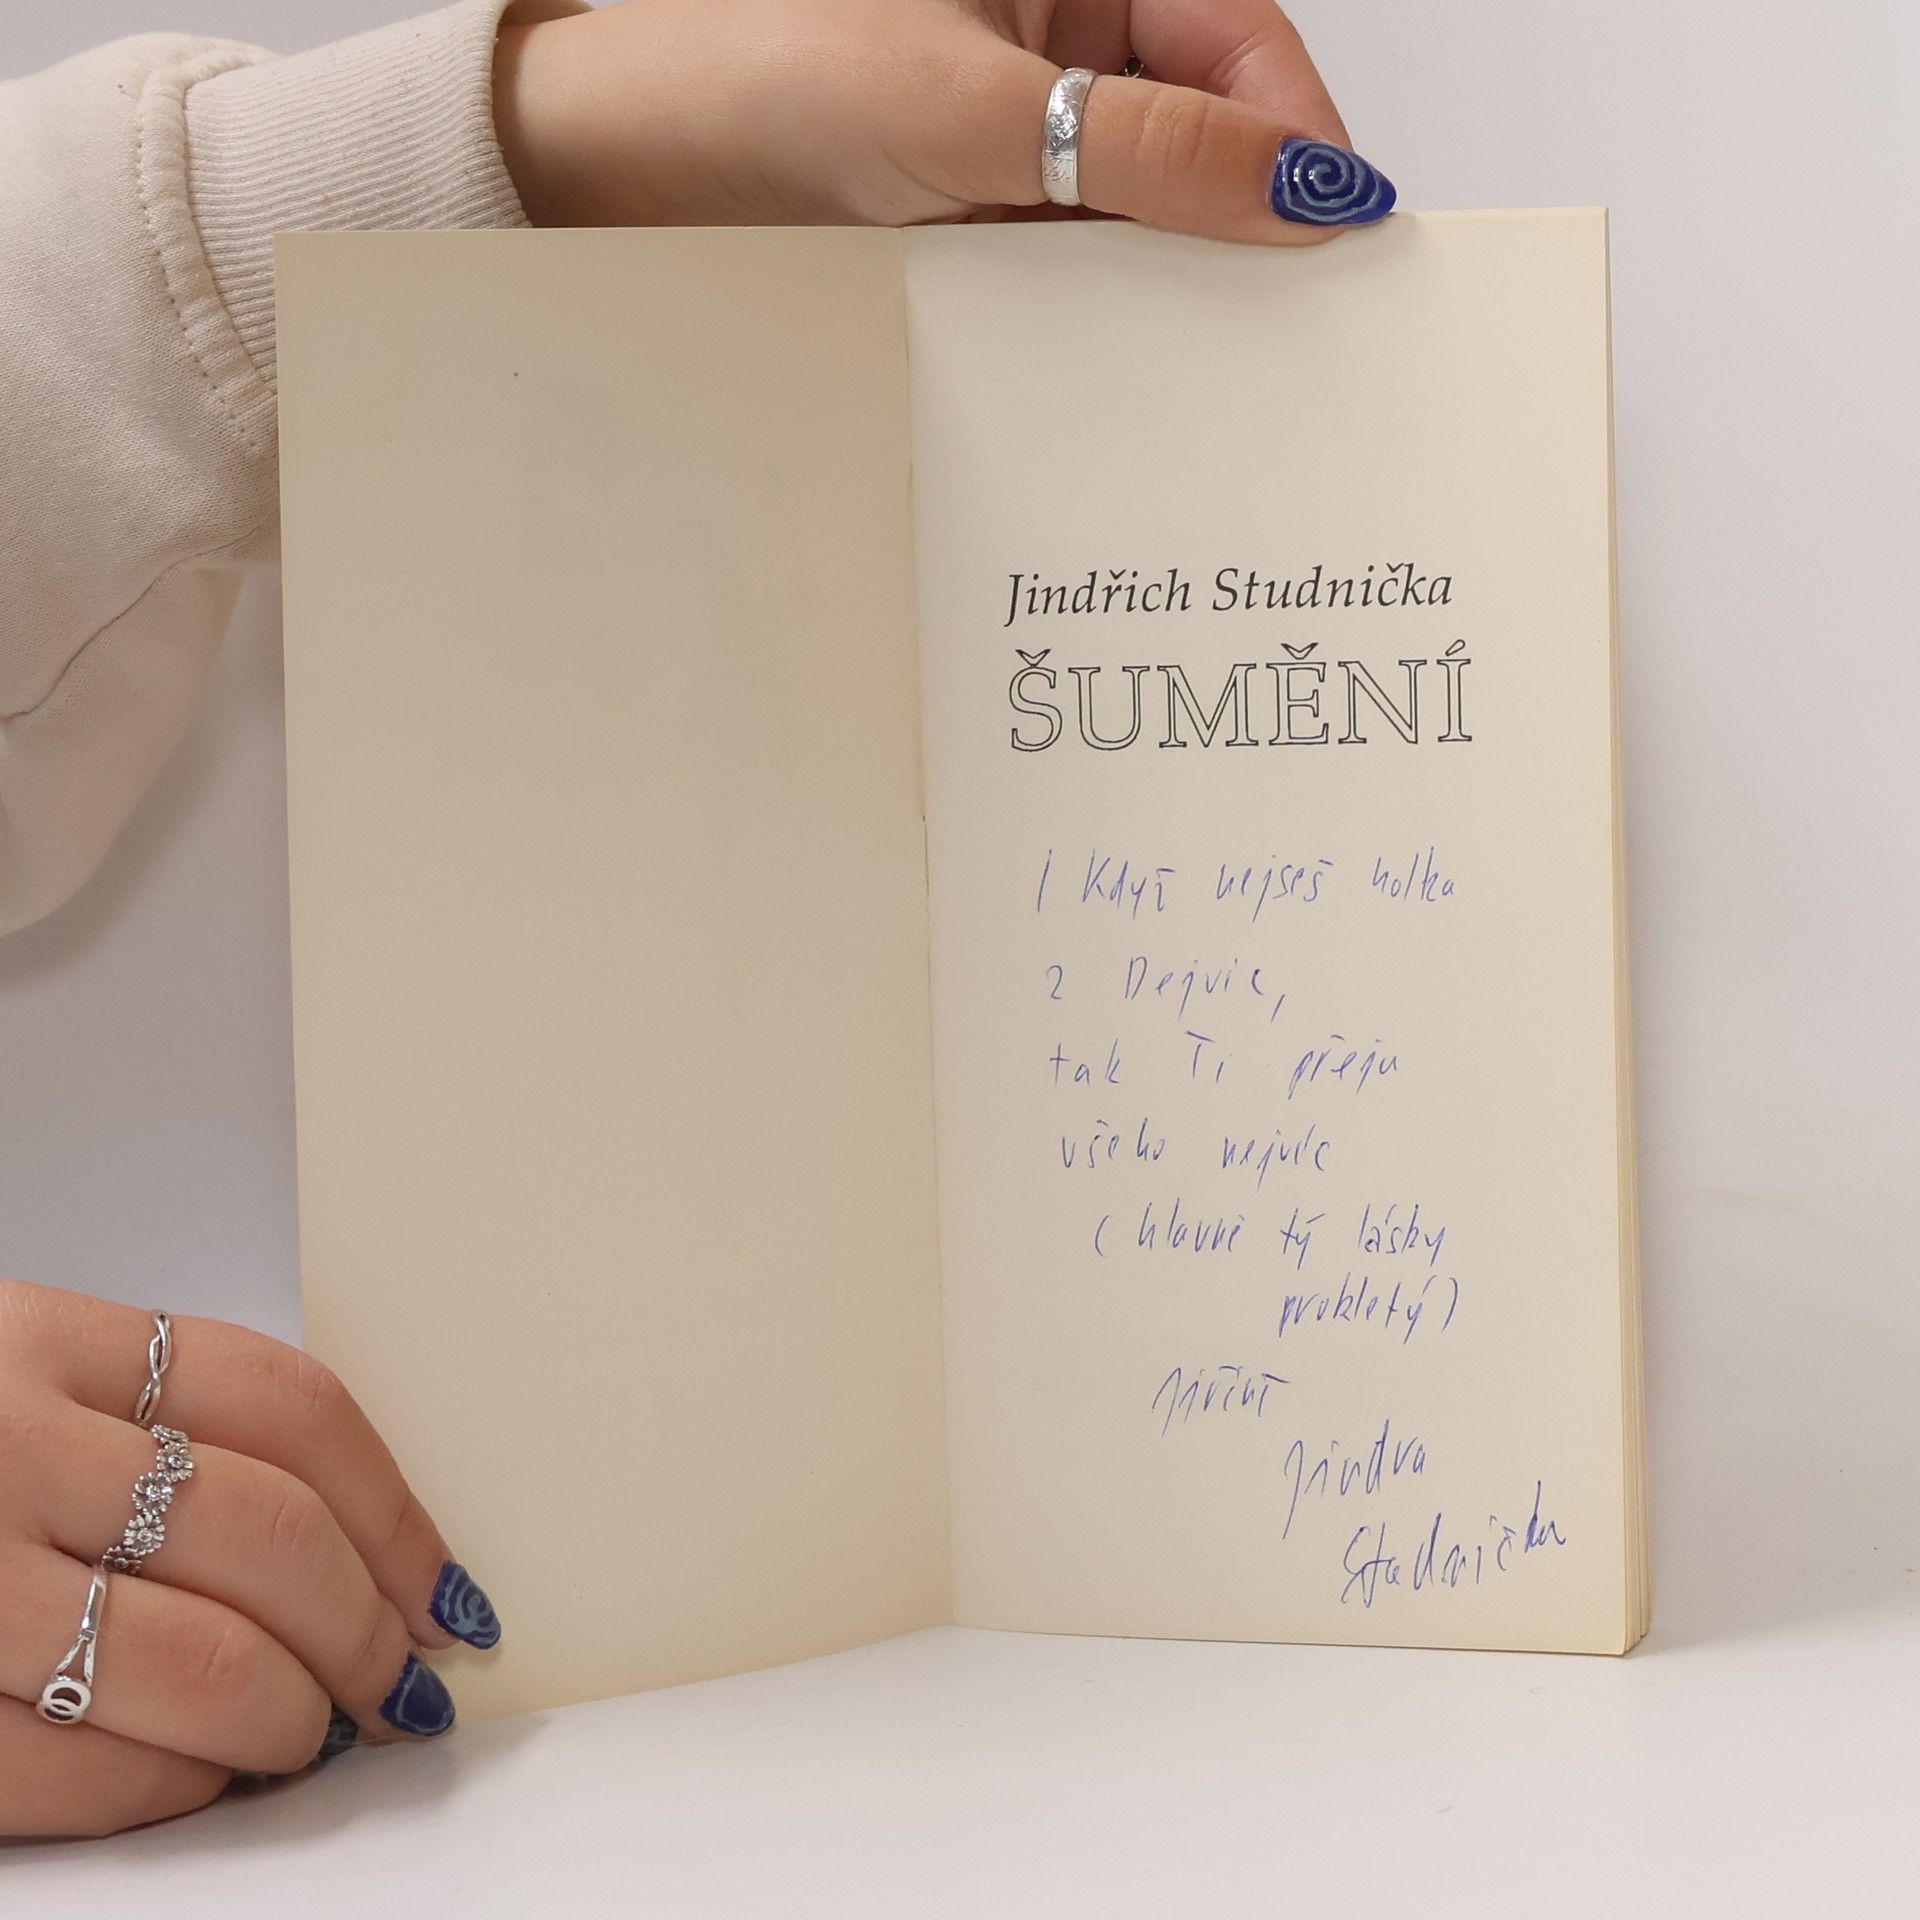 Jindřich Studnička
ŠUMĚNÍ
I Když nejseš holka
z Dejvic,
tak Ti přeju
všeho nejvíc
(hlavně tý lásky
prokletý)
Jiřině
Jindra
Studnička